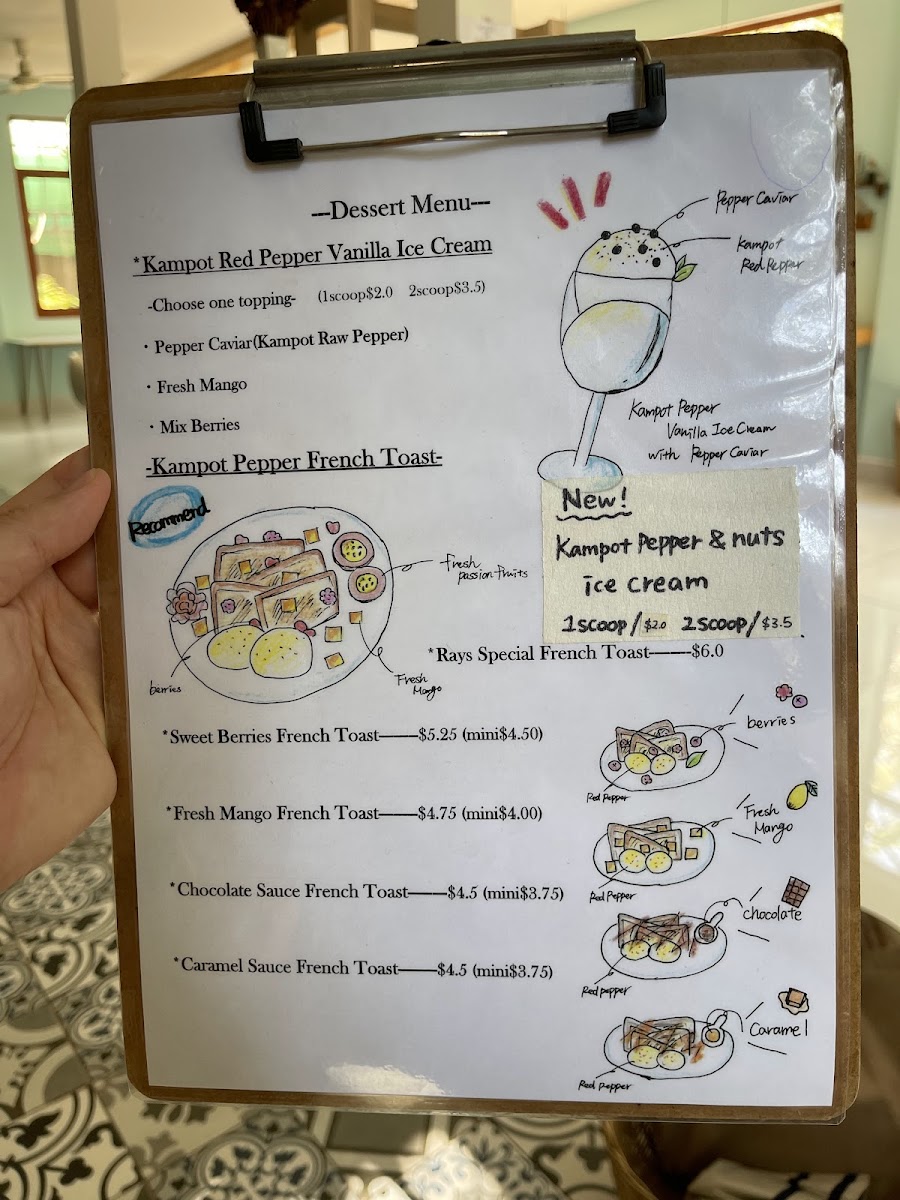 ---Dessert Menu---
*Kampot Red Pepper Vanilla Ice Cream
-Choose one topping- (1scoop$2.0 2scoop$3.5)
・Pepper Caviar(Kampot Raw Pepper)
・Fresh Mango
・Mix Berries
Pepper Caviar
Kampot
Red Pepper
Kampot Pepper
Vanilla Ice Cream
with Pepper Caviar
-Kampot Pepper French Toast-
Recommend
fresh
passion fruits
berries
Fresh
Mango
New!
Kampot Pepper & nuts
ice cream
1scoop/$2.0 2scoop/$3.5
*Rays Special French Toast——$6.0
*Sweet Berries French Toast——$5.25 (mini$4.50)
berries
Red Pepper
*Fresh Mango French Toast——$4.75 (mini$4.00)
Fresh
Mango
Red Pepper
*Chocolate Sauce French Toast——$4.5 (mini$3.75)
chocolate
Red pepper
*Caramel Sauce French Toast——$4.5 (mini$3.75)
Caramel
Red Pepper